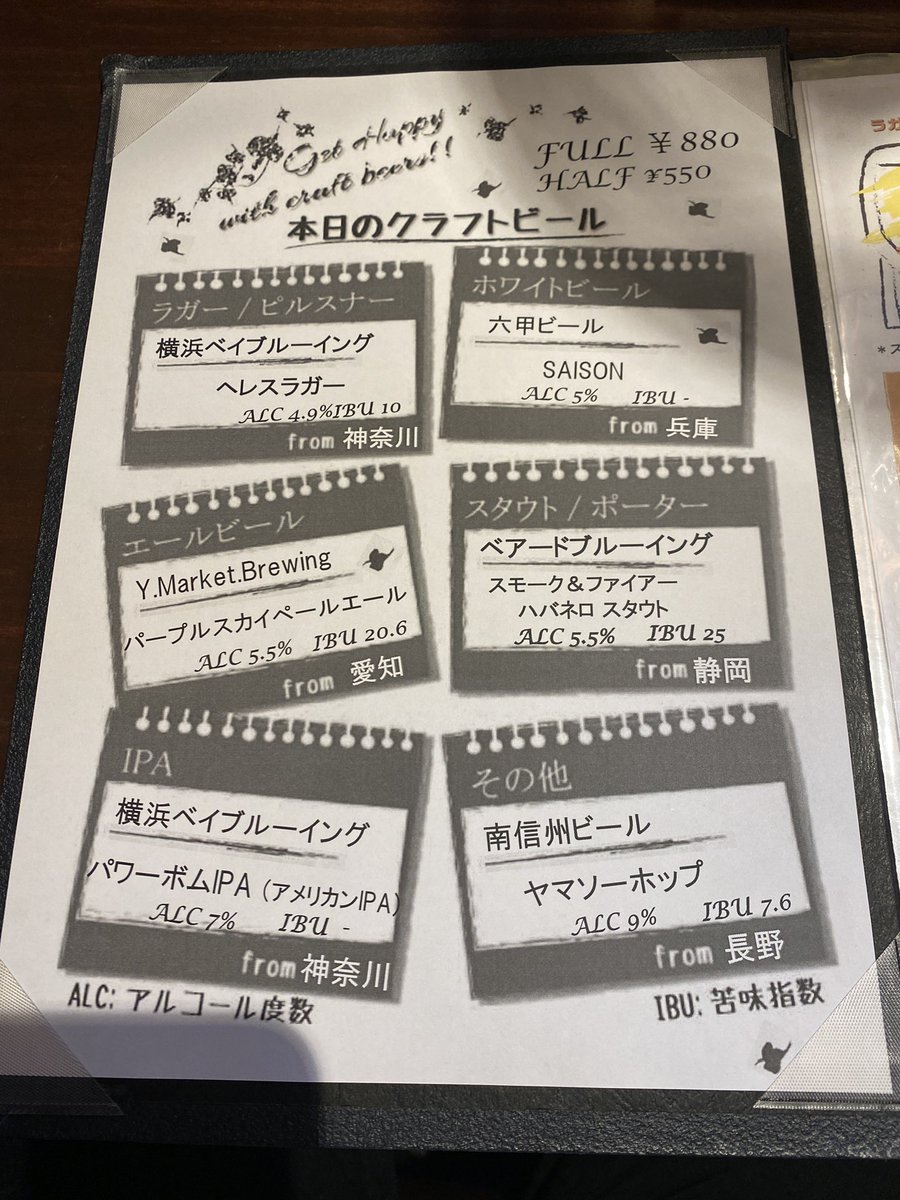 Get Hoppy
with craft beers!!
FULL ¥880
HALF ¥550
本日のクラフトビール
ラガー / ピルスナー
横浜ベイブルーイング
ヘレスラガー
ALC 4.9% IBU 10
from 神奈川
ホワイトビール
六甲ビール
SAISON
ALC 5% IBU -
from 兵庫
エールビール
Y.Market.Brewing
パープルスカイペールエール
ALC 5.5% IBU 20.6
from 愛知
スタウト / ポーター
ベアードブルーイング
スモーク&ファイアー
ハバネロ スタウト
ALC 5.5% IBU 25
from 静岡
IPA
横浜ベイブルーイング
パワーボムIPA (アメリカンIPA)
ALC 7% IBU -
from 神奈川
その他
南信州ビール
ヤマソーホップ
ALC 9% IBU 7.6
from 長野
ALC: アルコール度数
IBU: 苦味指数
ラガ
*ス